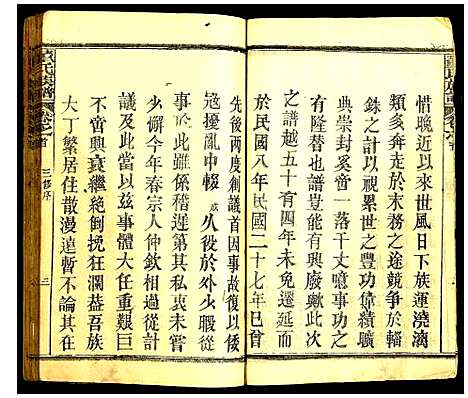 惜晚近以來世風日下族運澆漓
類多奔走於末務之途競爭於輜
銖之計以視累世之豐功偉績曠
典崇封奚啻一落千丈噫事功之
有隆替也譜豈能有興廢歟此次
之譜越五十有四年未遑延而
於民國八年民國二十七年已首
先後兩度創議首因事故復以倭
寇擾亂中輟或人役於外少暇從
事於此雖係稽遲第其私衷未嘗
少懈今年春宗人仲欽相過從計
議及此當以茲事體大任重艱巨
不啻興衰繼絕倒挽狂瀾益吾族
大丁繁居住散漫遠暫不論其在
三修序
二
氏族譜
卷之首